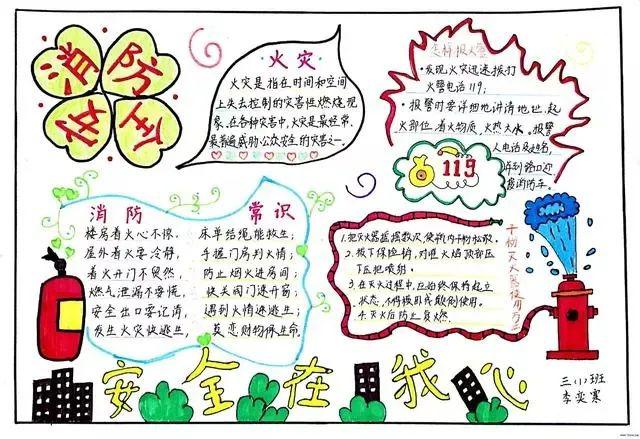 消防
安全
火灾
火灾是指在时间和空间
上失去控制的灾害性燃烧现
象,在各种灾害中,火灾是最经常、
最普遍威胁公众安全的灾害之一。
怎样报火警
·发现火灾迅速拨打
火警电话119;
·报警时要详细地讲清地址、起
火部位、着火物质、火势大小、报警
人电话及姓名,
并到路口迎
接消防车。
119
消防 常识
楼房着火心不惊,
屋外着火要冷静,
着火开门不贸然,
燃气泄漏不要慌,
安全出口要记清,
发生火灾快逃生,
床单结绳能救生;
手握门房判火情;
防止烟火进房间;
快关阀门速开窗;
遇到火情猜逃生;
莫恋财物保生命。
干粉灭火器使用方法
1.把灭火器摇摇数次,使瓶内干粉松散。
2.拔下保险销,对准火焰
喷射。
3.在灭火过程中,应始终保持直立
状态,不得横卧或颠倒使用。
4.灭火后防止复燃。
安全在我心
三(1)班
李奕寒